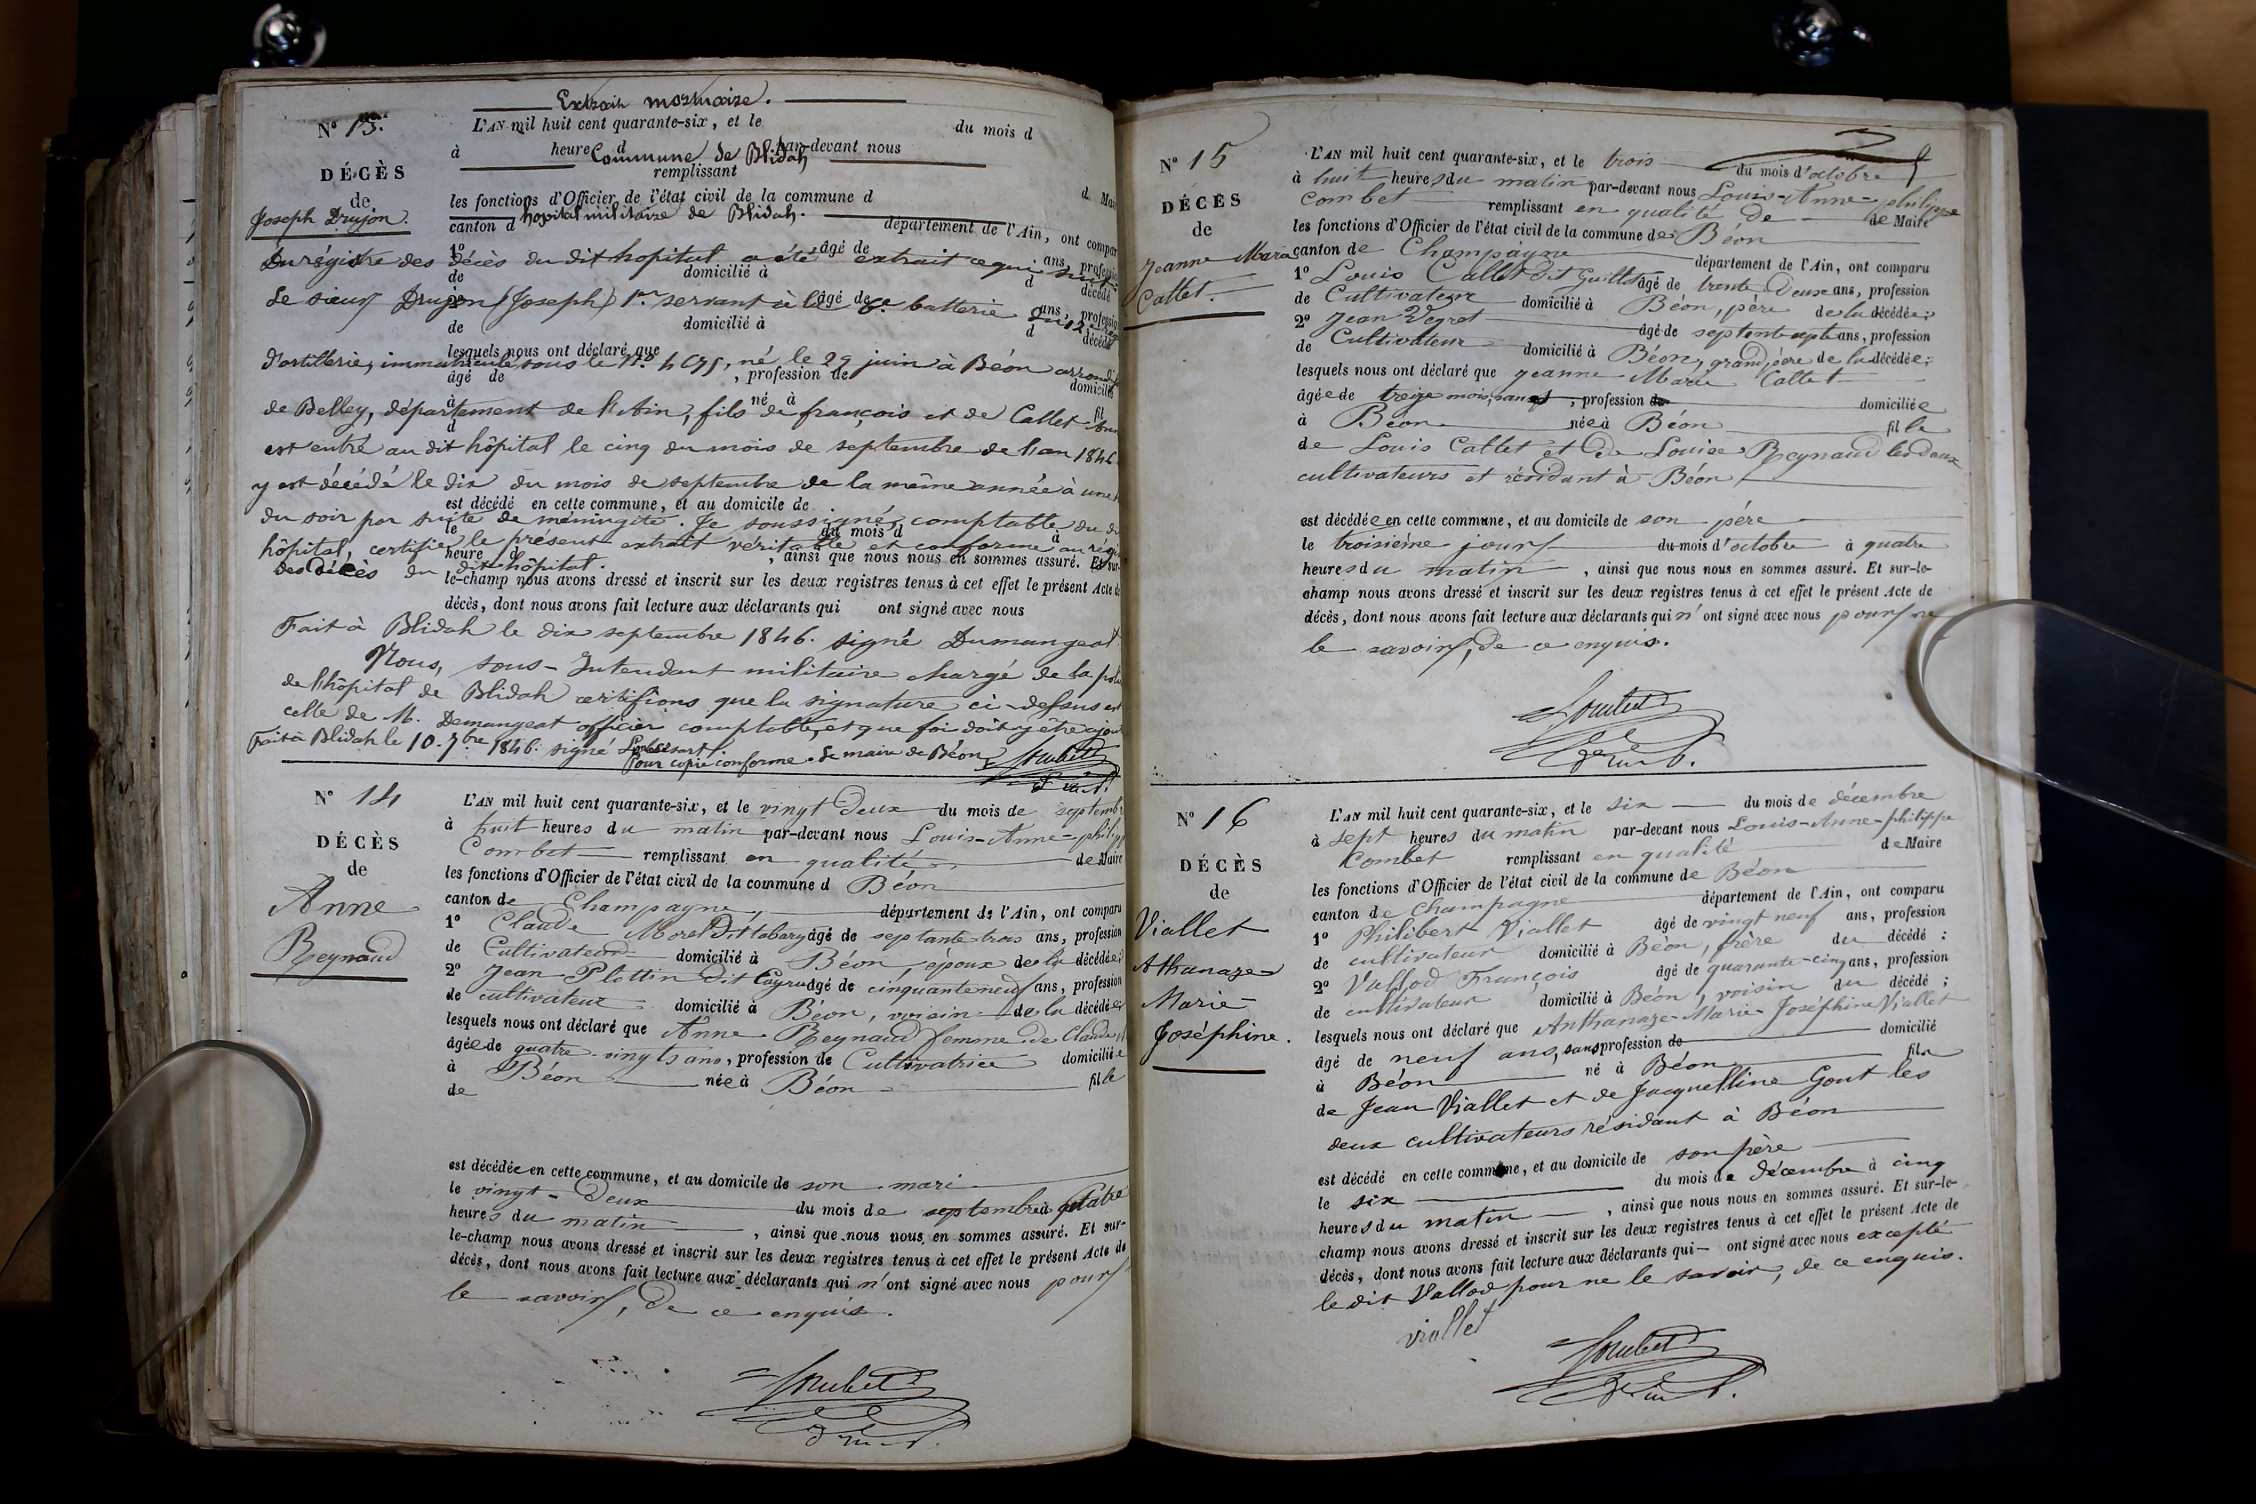 Extrait mortuaire.
N° 13.
L'AN mil huit cent quarante-six, et le du mois d
à heure d par-devant nous
Commune de Blidah
DÉCÈS
remplissant
de
les fonctions d'Officier de l'état civil de la commune d d Mai
Joseph Drujon.
hopital militaire de Blidah.
canton d département de l'Ain, ont compar
1° âgé de ans, profession
Du régistre des décès du dit hopital a été extrait ce qui suit
de domicilié à d décédé
Le sieur Drujon (Joseph) 1er servant à la 6e batterie du 12
2° âgé de ans, profession
de domicilié à d décédé
lesquels nous ont déclaré que
d'artillerie, immatriculé sous le N°, né le 29 juin à Béon arrond
âgé de , profession de domicilié
à né à fil
de Belley, département de l'Ain, fils de françois et de Callet Ann
d
est entré au dit hôpital le cinq du mois de septembre de l'an 1846
y est décédé le dix du mois de septembre de la même année à une
est décédé en cette commune, et au domicile de
du soir par suite de méningite. Je soussigné, comptable du d
le du mois d à
hôpital, certifie le présent extrait véritable et conforme au régi
heure d , ainsi que nous nous en sommes assuré. Et sur-
des décès du dit hôpital.
le-champ nous avons dressé et inscrit sur les deux registres tenus à cet effet le présent Acte de
décès, dont nous avons fait lecture aux déclarants qui ont signé avec nous
Fait à Blidah le dix septembre 1846. signé Dumangeot
Nous, sous-Intendant militaire chargé de la poli
de l'hôpital de Blidah certifions que la signature ci-dessus est
celle de M. Demangeat officier comptable, et que foi doit y être ajou
Fait à Blidah le 10. 7bre 1846. signé
Pour copie conforme. Le maire de Béon, Combet
N° 14
L'AN mil huit cent quarante-six, et le vingt deux du mois de septemb
à huit heures du matin par-devant nous Louis-Anne-philipp
DÉCÈS
Combet remplissant en qualité de Maire
de
les fonctions d'Officier de l'état civil de la commune d Béon
Anne
canton de Champagne, département de l'Ain, ont comparu
Reynaud
1° Claude Morel Dit tabary âgé de septante trois ans, profession
de Cultivateur domicilié à Béon, époux de la décédée;
2° Jean Plottin dit âgé de cinquante neuf ans, profession
de cultivateur domicilié à Béon, voisin de la décédée;
lesquels nous ont déclaré que Anne Reynaud femme de Claude
âgée de quatre-vingts ans, profession de Cultivatrice domiciliée
à Béon née à Béon fille
de
est décédée en cette commune, et au domicile de son mari
le vingt-deux du mois de septembre à quatre
heures du matin , ainsi que nous nous en sommes assuré. Et sur-
le-champ nous avons dressé et inscrit sur les deux registres tenus à cet effet le présent Acte de
décès, dont nous avons fait lecture aux déclarants qui n'ont signé avec nous pour
le savoir, de ce enquis.
Combet
N° 15
L'AN mil huit cent quarante-six, et le trois du mois d'octobre
à huit heures du matin par-devant nous Louis-Anne-philippe
DÉCÈS
Combet remplissant en qualité de de Maire
de
les fonctions d'Officier de l'état civil de la commune de Béon
Jeanne Marie
canton de Champagne département de l'Ain, ont comparu
Callet.
1° Louis Callet dit Guillot âgé de trente deux ans, profession
de Cultivateur domicilié à Béon, père de la décédée;
2° Jean Veyret âgé de septante sept ans, profession
de Cultivateur domicilié à Béon, grand père de la décédée;
lesquels nous ont déclaré que jeanne Marie Callet
âgée de treize mois, sans , profession de domiciliée
à Béon née à Béon fille
de Louis Callet et de Louise Reynaud les deux
cultivateurs et résidant à Béon
est décédée en cette commune, et au domicile de son père
le troisième jour du mois d'octobre à quatre
heures du matin , ainsi que nous nous en sommes assuré. Et sur-le-
champ nous avons dressé et inscrit sur les deux registres tenus à cet effet le présent Acte de
décès, dont nous avons fait lecture aux déclarants qui n'ont signé avec nous pour ne
le savoir, de ce enquis.
Combet
N° 16
L'AN mil huit cent quarante-six, et le six du mois de décembre
à sept heures du matin par-devant nous Louis-Anne-philippe
DÉCÈS
Combet remplissant en qualité de Maire
de
les fonctions d'Officier de l'état civil de la commune de Béon
Viallet
canton de Champagne département de l'Ain, ont comparu
Athanaze
1° Philibert Viallet âgé de vingt neuf ans, profession
Marie-
de cultivateur domicilié à Béon, frère du décédé :
Joséphine.
2° Vallod François âgé de quarante-cinq ans, profession
de cultivateur domicilié à Béon, voisin du décédé ;
lesquels nous ont déclaré que Anthanaze-Marie-Joséphine Viallet
âgé de neuf ans, sans profession de domicilié
à Béon né à Béon fils
de Jean Viallet et de Jacquelline Gont les
deux cultivateurs résidant à Béon
est décédé en cette commune, et au domicile de son père
le six du mois de décembre à cinq
heures du matin , ainsi que nous nous en sommes assuré. Et sur-le-
champ nous avons dressé et inscrit sur les deux registres tenus à cet effet le présent Acte de
décès, dont nous avons fait lecture aux déclarants qui ont signé avec nous excepté
le dit Vallod pour ne le savoir, de ce enquis.
viallet
Combet